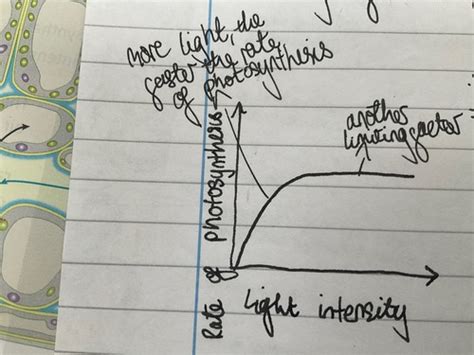 more light, the
faster the rate
of photosynthesis
another
limiting factor
Rate of photosynthesis
light intensity